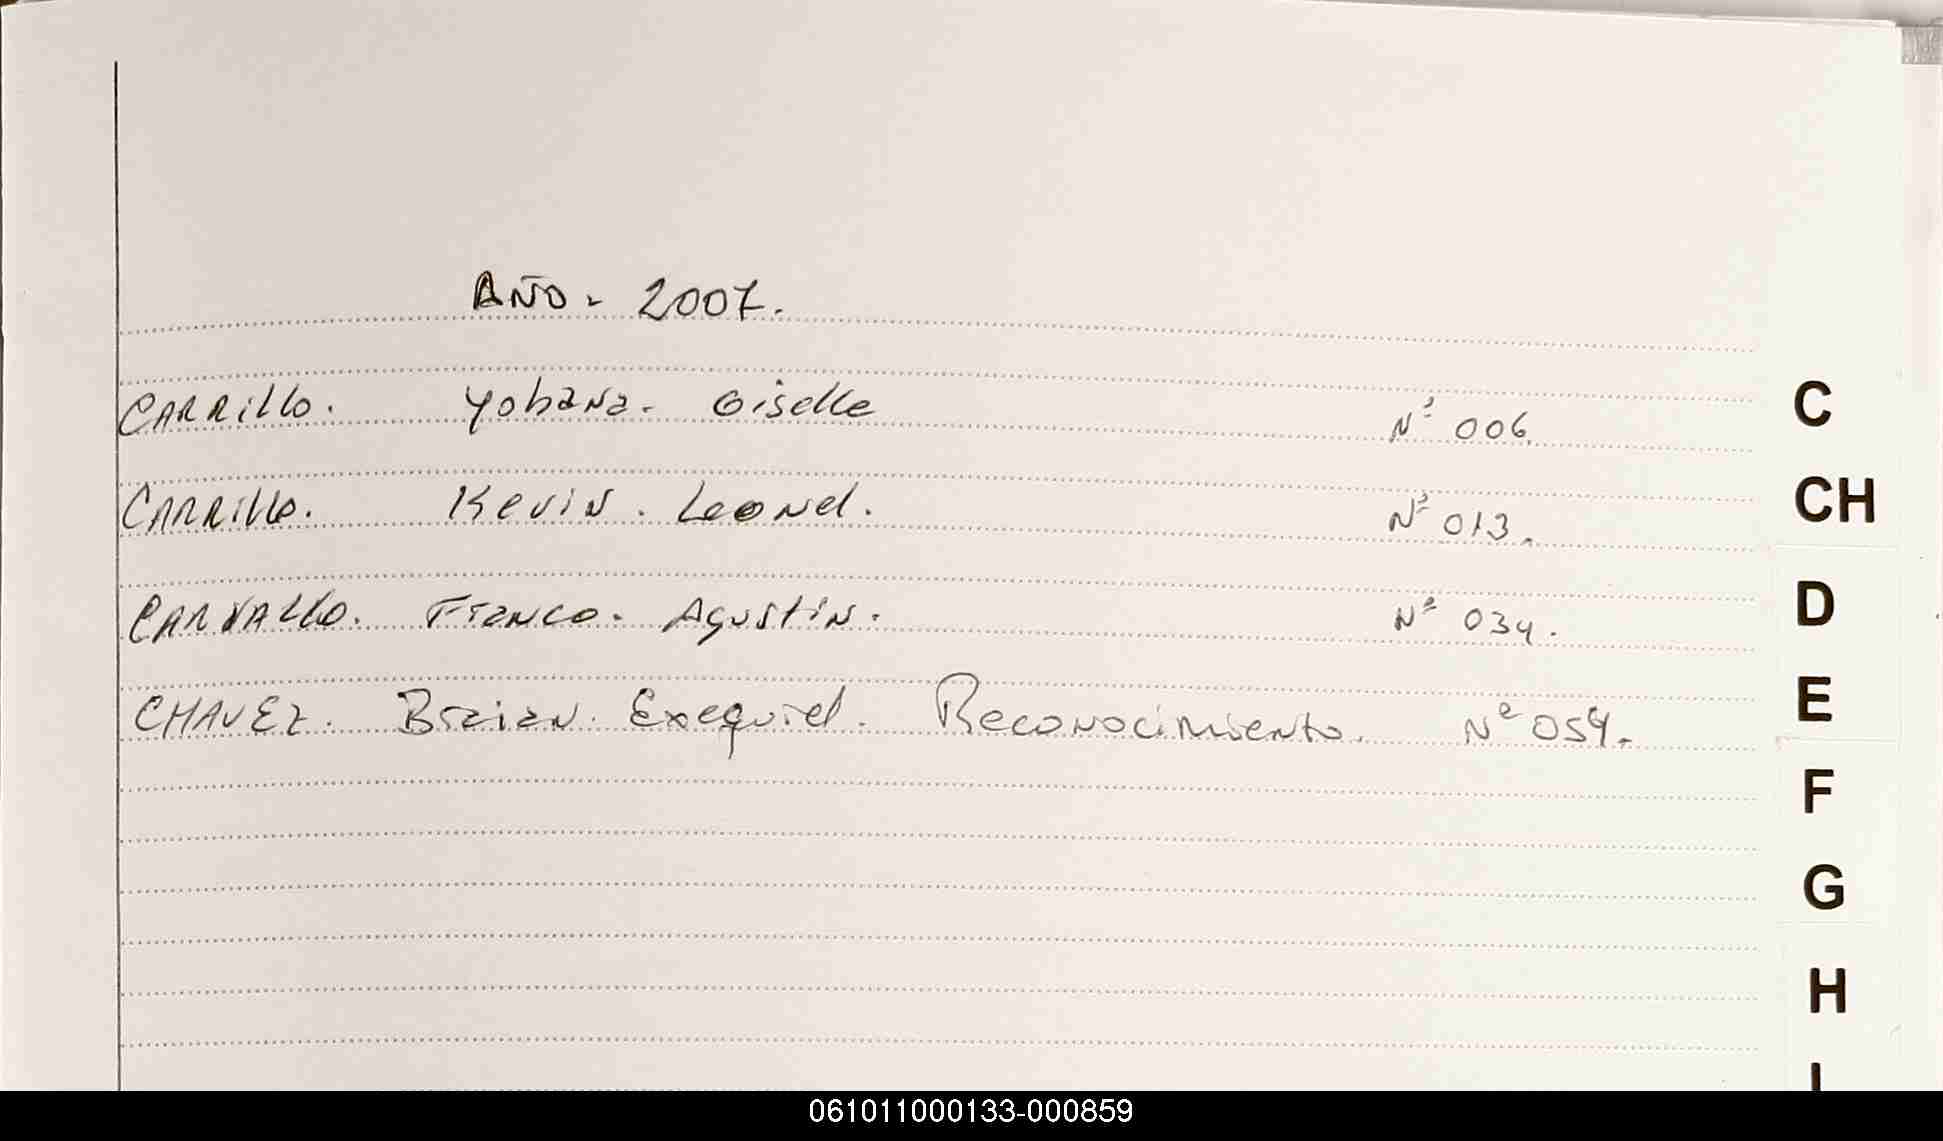 AÑO - 2007.
CARRILLO. Yohana - Giselle Nº 006.
CARRILLO. Kevin . Leonel. Nº 013.
CARVALLO. Franco. Agustin. Nº 034.
CHAVEZ. Braian. Exequiel. Reconocimiento. Nº 059.
C
CH
D
E
F
G
H
I
061011000133-000859